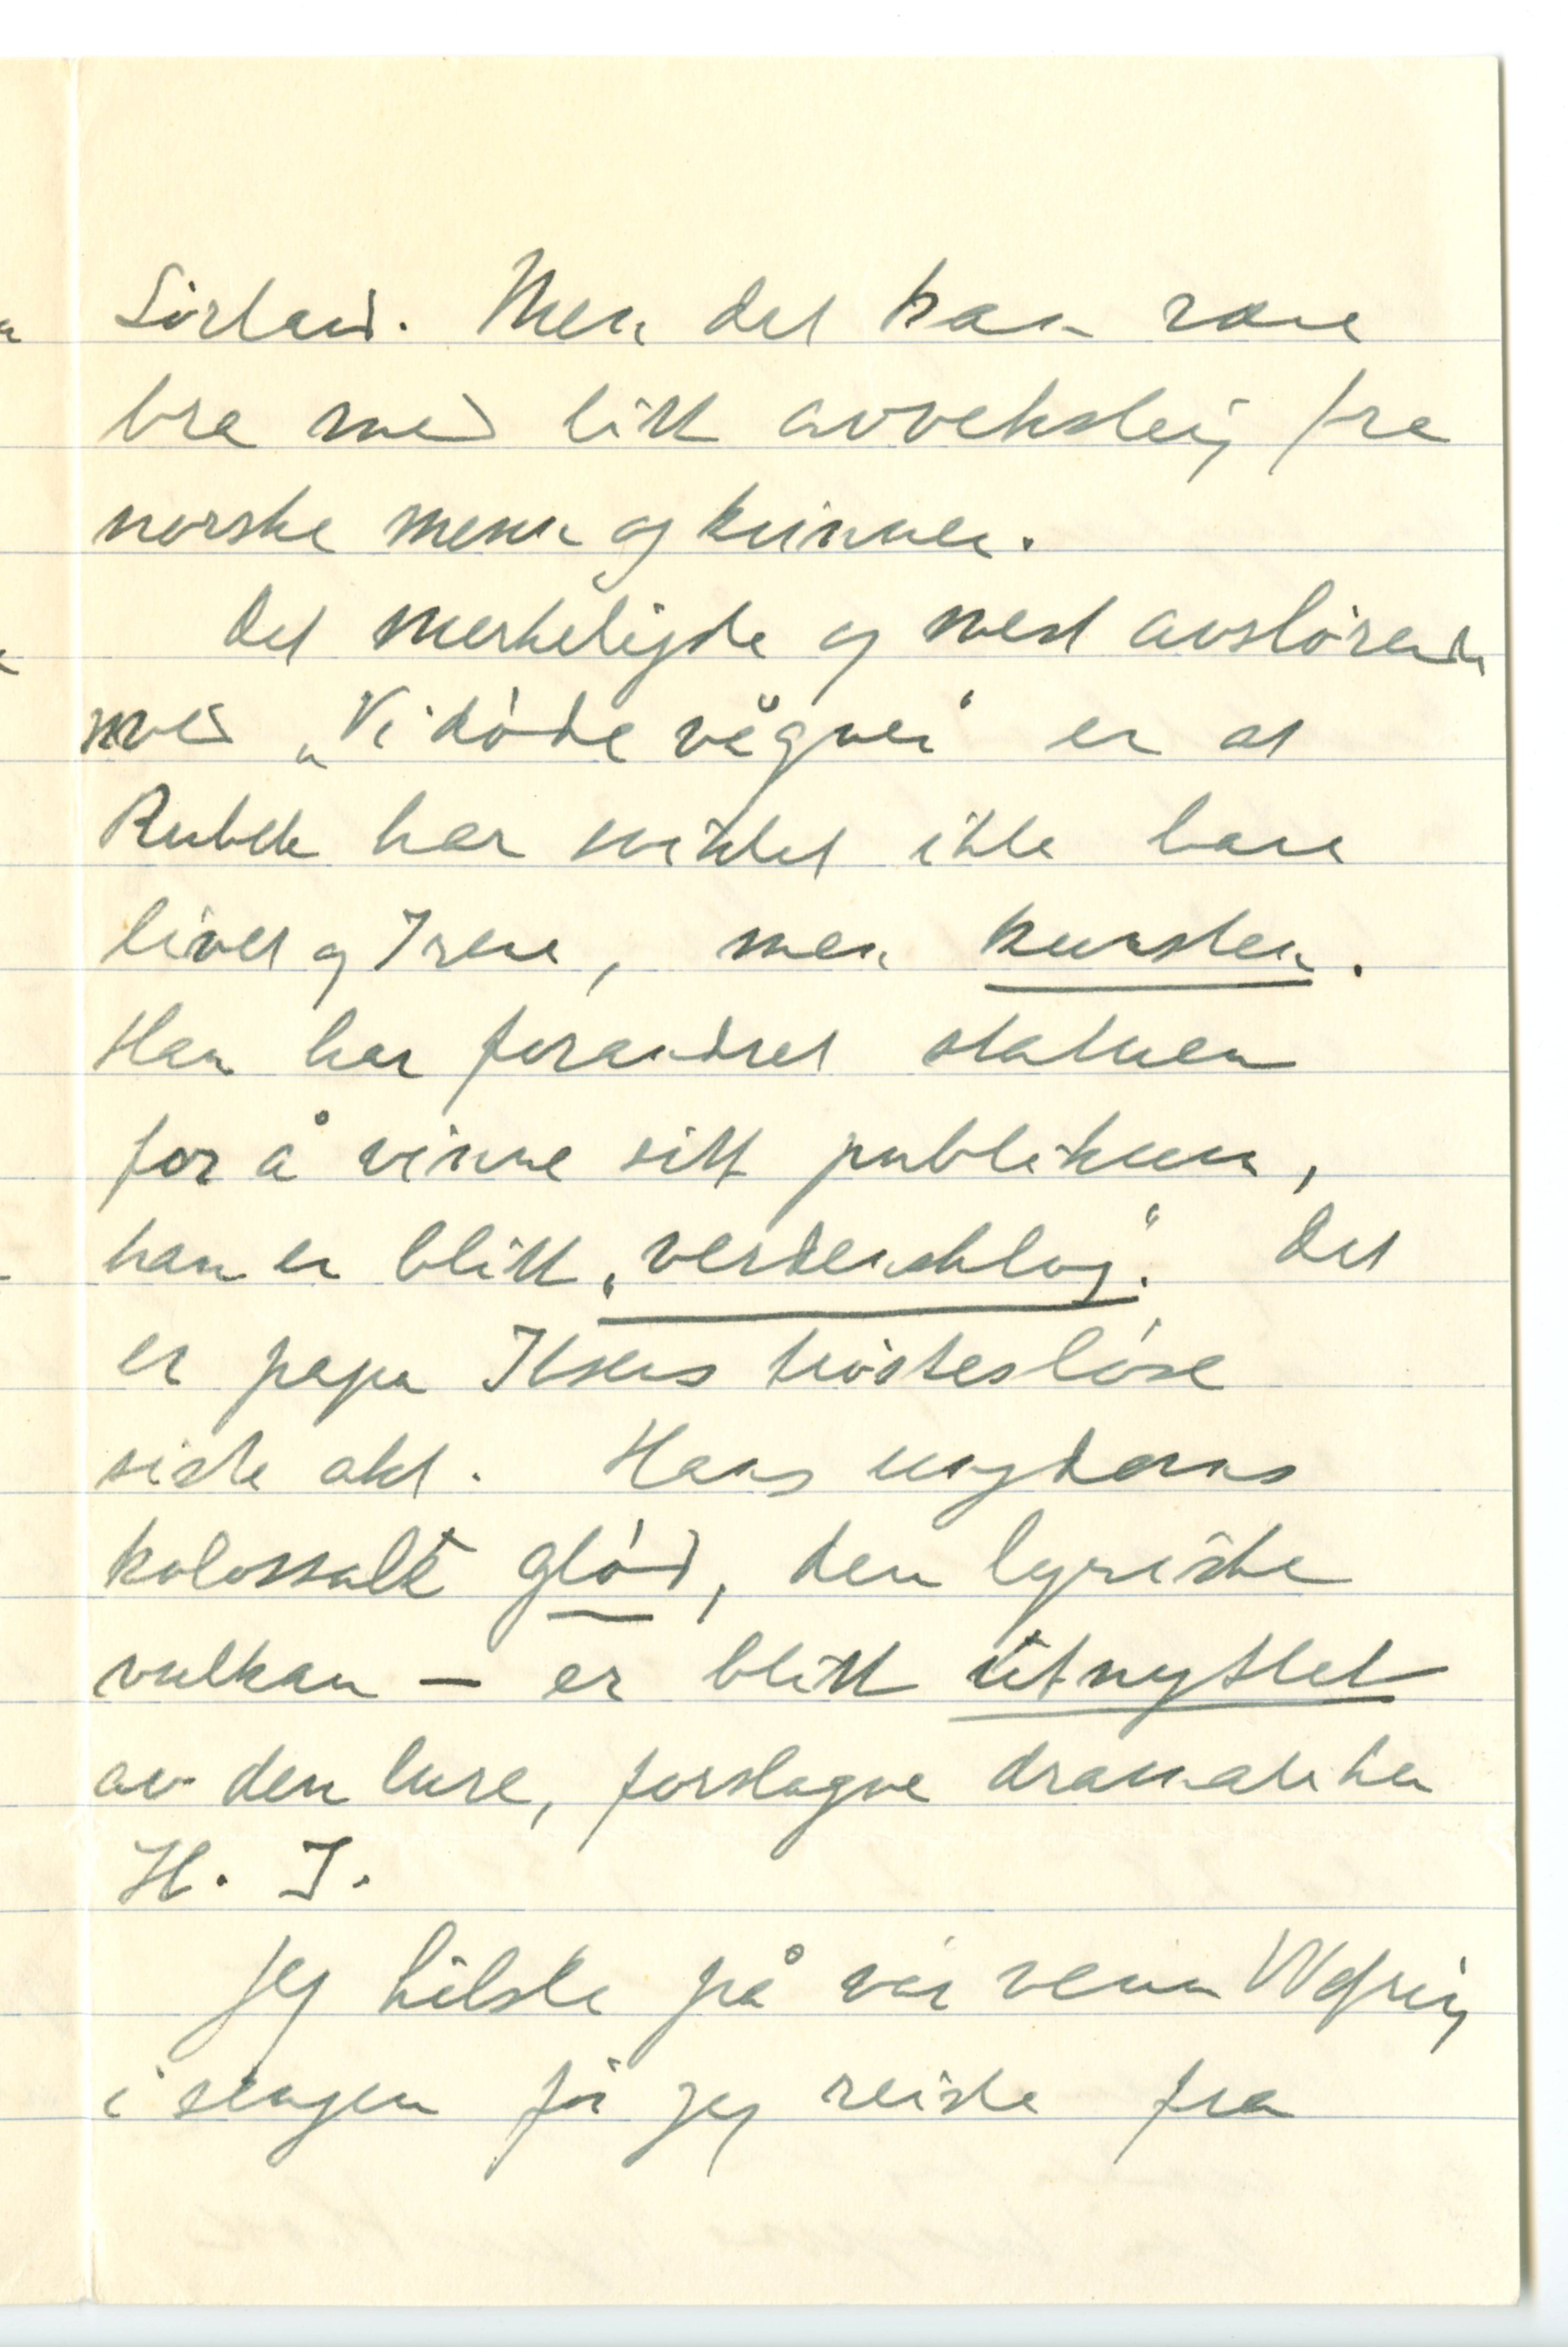 Sørland. Men det kan være
bra med litt avveksling fra
norske menn og kvinner.
Det merkeligste og mest avslørende
med „Vi døde vågner“ er at
Rubek har sviktet ikke bare
livet og Irene, men kunsten.
Han har forandret statuen
for å vinne sitt publikum,
han er blitt „verdensklog“. Det
er papa Ibsens trøstesløse
siste akt. Hans ungdoms
kolossale glød, den lyriske
vulkan — er blitt utnyttet
av den lure, forslagne dramatiker
H. I.
Jeg hilste på vår venn
i sengen før jeg reiste fra